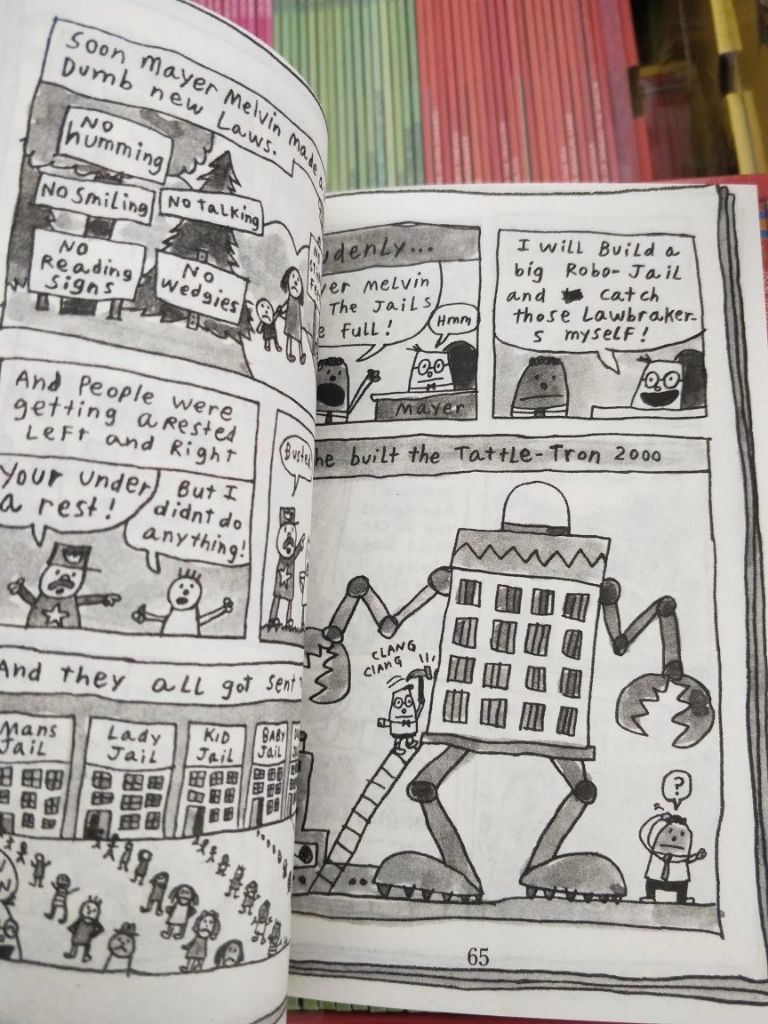 Soon Mayer Melvin made a
Dumb new Laws.
NO
humming
NO Smiling
NO TALKING
NO
Reading
Signs
NO
Wedgies
And People were
getting a rested
Left and Right
Your under
a rest!
But I
didnt do
anything!
Busted
And they all got sent
Mans
Jail
Lady
Jail
KiD
Jail
BABY
Jail
denly...
Melvin
The Jails
Full!
Hmm
Mayer
I will Build a
big Robo-Jail
and catch
those Lawbraker-
s myself!
he built the Tattle-Tron 2000
CLANG
CLANG
?
65